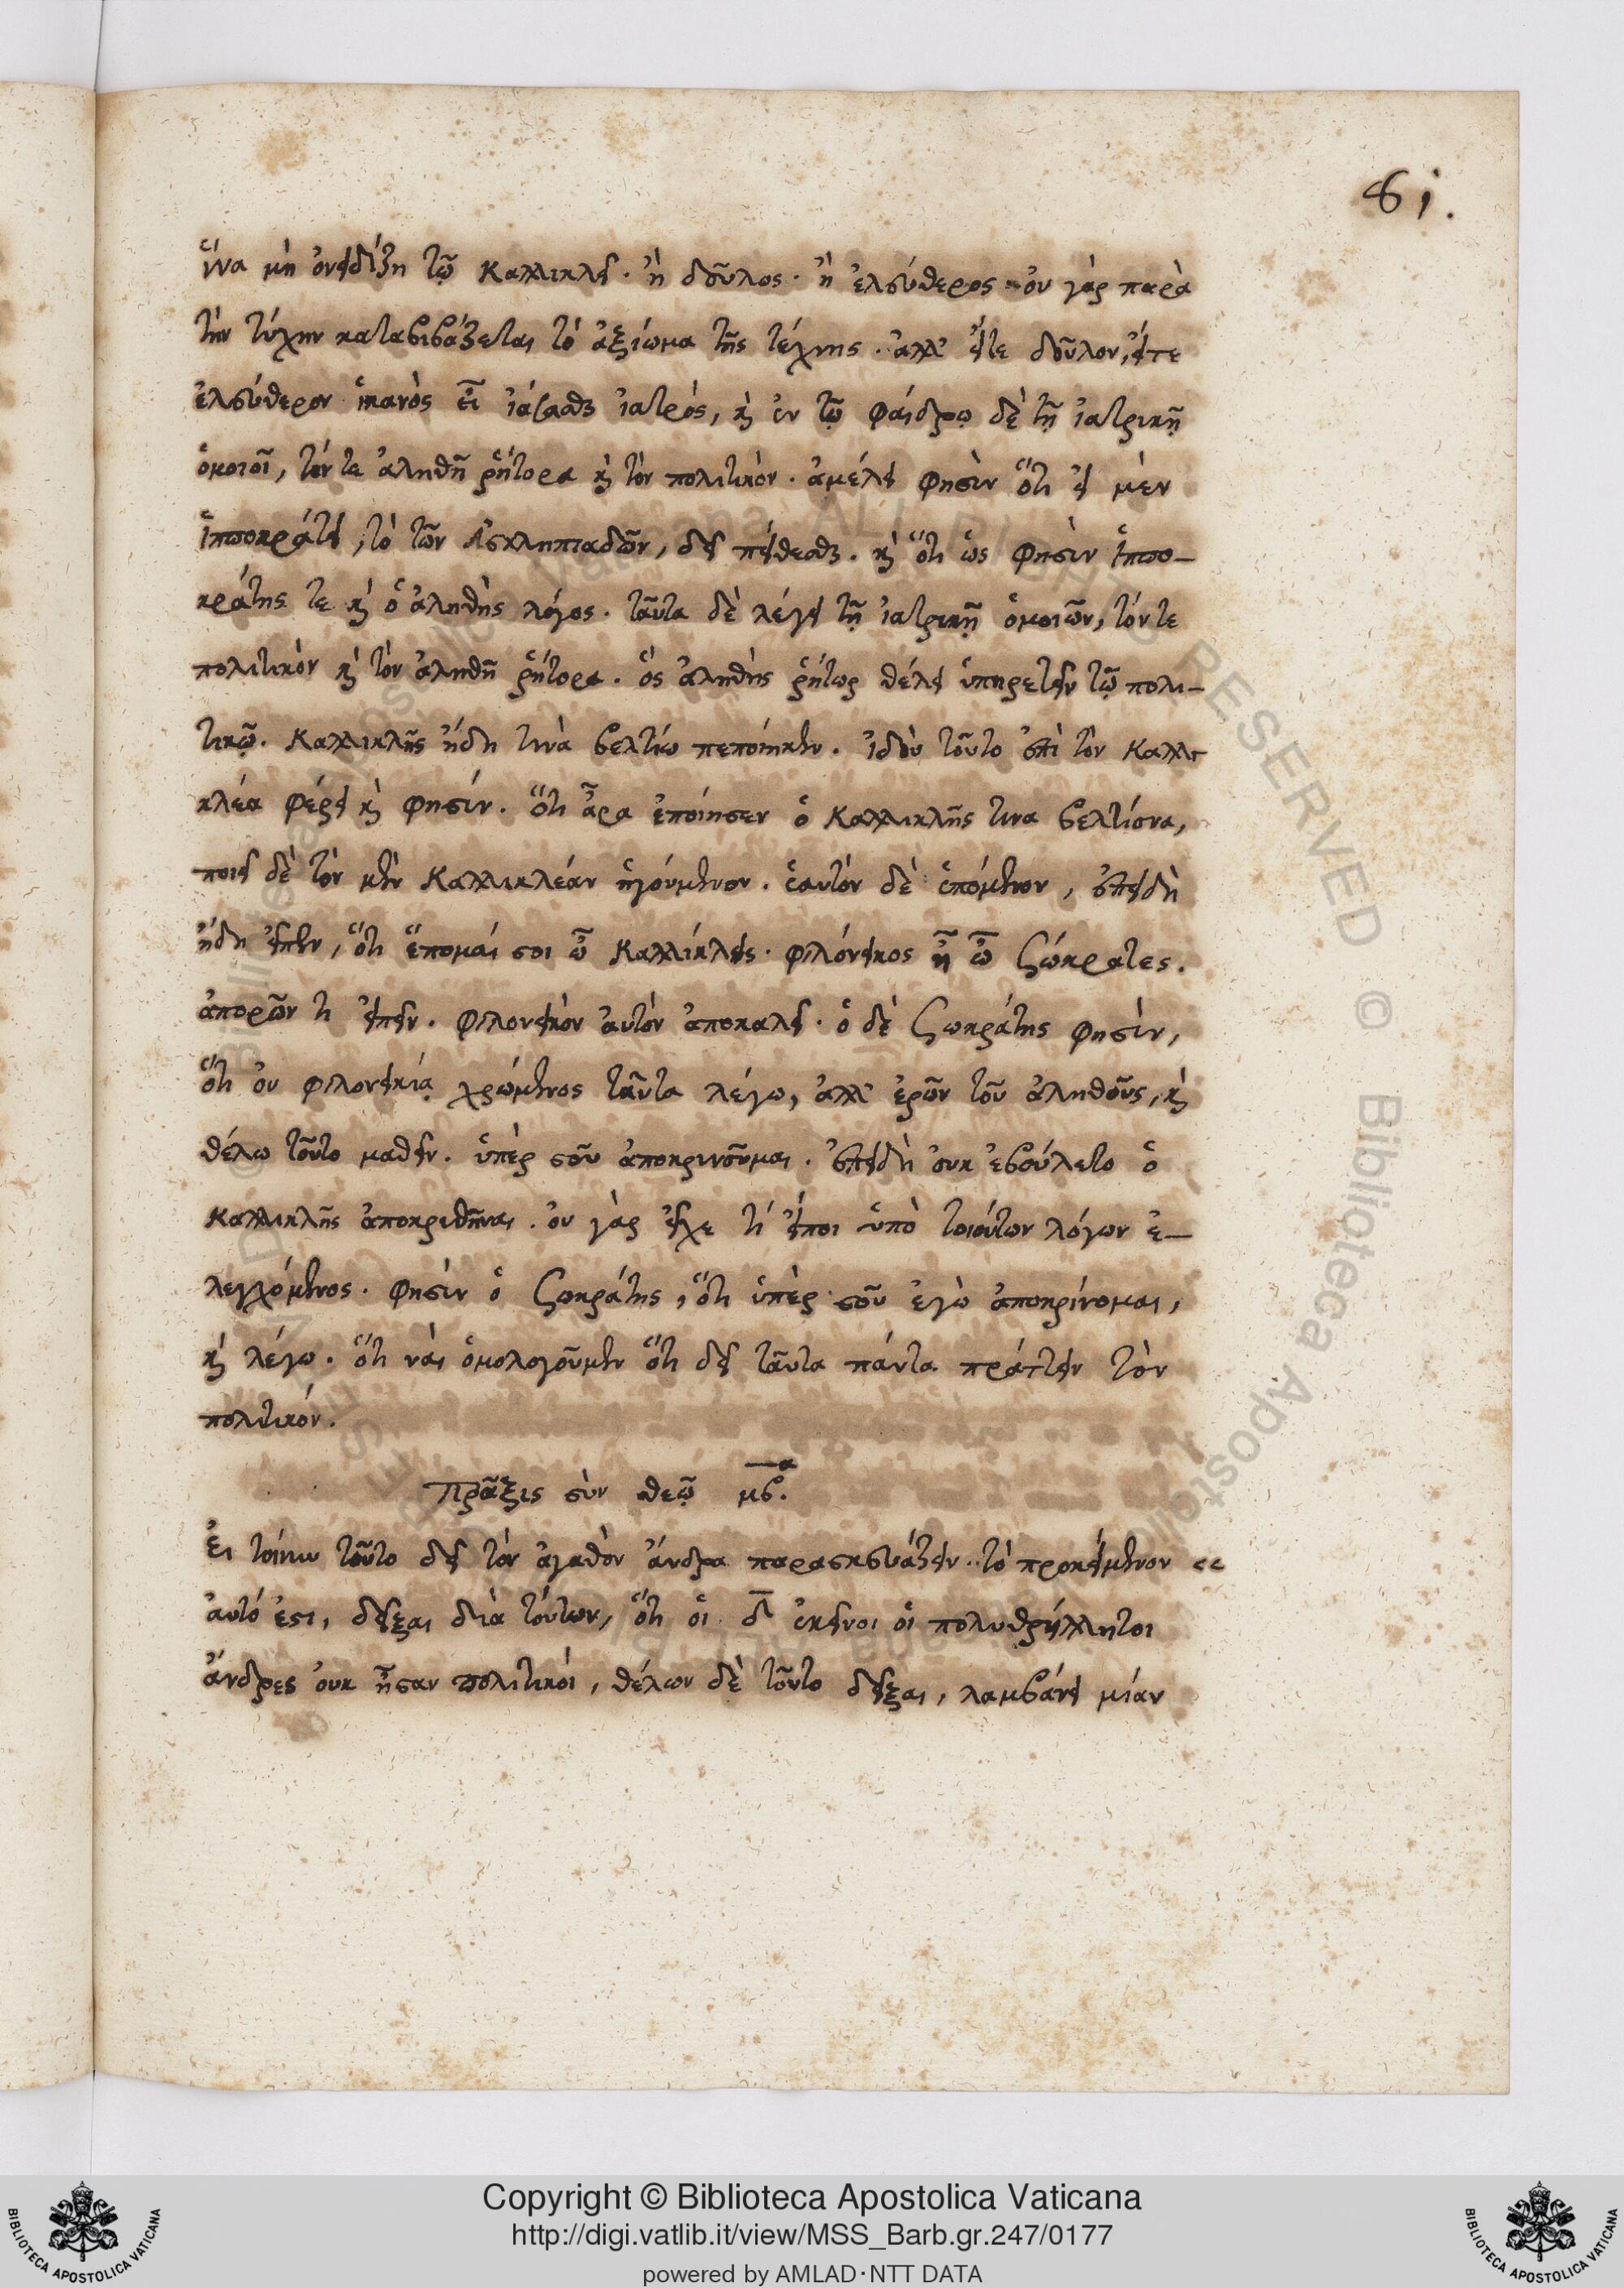 81.
ἵνα μὴ ὀνειδίζῃ τῷ Καλλικλεῖ. ἢ δοῦλος. ἢ ἐλεύθερος οὐ γὰρ παρὰ
τὴν τύχην καταβιβάζεται τὸ ἀξίωμα τῆς τέχνης. ἀλλ' εἴτε δοῦλον, εἴτε
ἐλεύθερον ἱκανὸς ἰάσασθαι ἰατρός, καὶ ἐν τῷ Φαίδρῳ δὲ τῇ ἰατρικῇ
ὁμοιοῖ, τόν τε ἀληθῆ ῥήτορα καὶ τὸν πολιτικόν. ἀμέλει φησὶν ὅτι εἰ μὲν
ἱπποκράτει, τὸ τῶν Ἀσκληπιαδῶν, δεῖ πείθεσθαι. καὶ ὅτι ὥς φησὶν ἱππο-
κράτης τε καὶ ὁ ἀληθὴς λόγος. ταῦτα δὲ λέγει τῇ ἰατρικῇ ὁμοιῶν, τόν τε
πολιτικὸν καὶ τὸν ἀληθῆ ῥήτορα. ὁς ἀληθὴς ῥήτωρ θέλει ὑπηρετεῖν τῷ πολι-
τικῷ. Καλλικλῆς ἤδη τινὰ βελτίω πεποίηκεν. ἰδοὺ τοῦτο ἐπὶ τὸν Καλλι
κλέα φέρει καὶ φησίν. ὅτι ἆρα ἐποίησεν ὁ Καλλικλῆς τινα βελτίονα,
ποιεῖ δὲ τὸν μὲν Καλλικλέαν ἡγούμενον. ἑαυτὸν δὲ ἑπόμενον, ἐπειδὴ
ἤδη εἶπεν, ὅτι ἕπομαί σοι ὦ Καλλίκλεις. φιλόνεικος ἦ ὦ Σώκρατες.
ἀπορῶν τι εἰπεῖν. φιλονεικὸν αὐτὸν ἀποκαλεῖ. ὁ δὲ Σωκράτης φησίν,
ὅτι οὐ φιλονεικίᾳ χρώμενος ταῦτα λέγω, ἀλλ' ἐρῶν τοῦ ἀληθοῦς, καὶ
θέλω τοῦτο μαθεῖν. ὑπὲρ σοῦ ἀποκρινοῦμαι. ἐπειδὴ οὐκ ἐβούλετο ὁ
Καλλικλῆς ἀποκριθῆναι. οὐ γὰρ εἶχε τί εἴποι ὑπὸ τοιούτων λόγων ἐ-
λεγχόμενος. φησὶν ὁ Σωκράτης, ὅτι ὑπὲρ σοῦ ἐγὼ ἀποκρίνομαι,
καὶ λέγω. ὅτι ναὶ ὁμολογοῦμεν ὅτι δεῖ ταῦτα πάντα πράττειν τὸν
πολιτικόν.
Πρᾶξις σὺν θεῷ μβα.
Εἰ τοίνυν τοῦτο δεῖ τὸν ἀγαθὸν ἄνδρα παρασκευάζειν. τὸ προκείμενον «
αὐτό ἐστι, δεῖξαι διὰ τούτων, ὅτι οἱ δ ἐκεῖνοι οἱ πολυθρύλλητοι
ἄνδρες οὐκ ἦσαν πολιτικοί, θέλων δὲ τοῦτο δεῖξαι, λαμβάνει μίαν
Copyright © Biblioteca Apostolica Vaticana
http://digi.vatlib.it/view/MSS_Barb.gr.247/0177
powered by AMLAD·NTT DATA
BIBLIOTECA APOSTOLICA VATICANA
BIBLIOTECA APOSTOLICA VATICANA